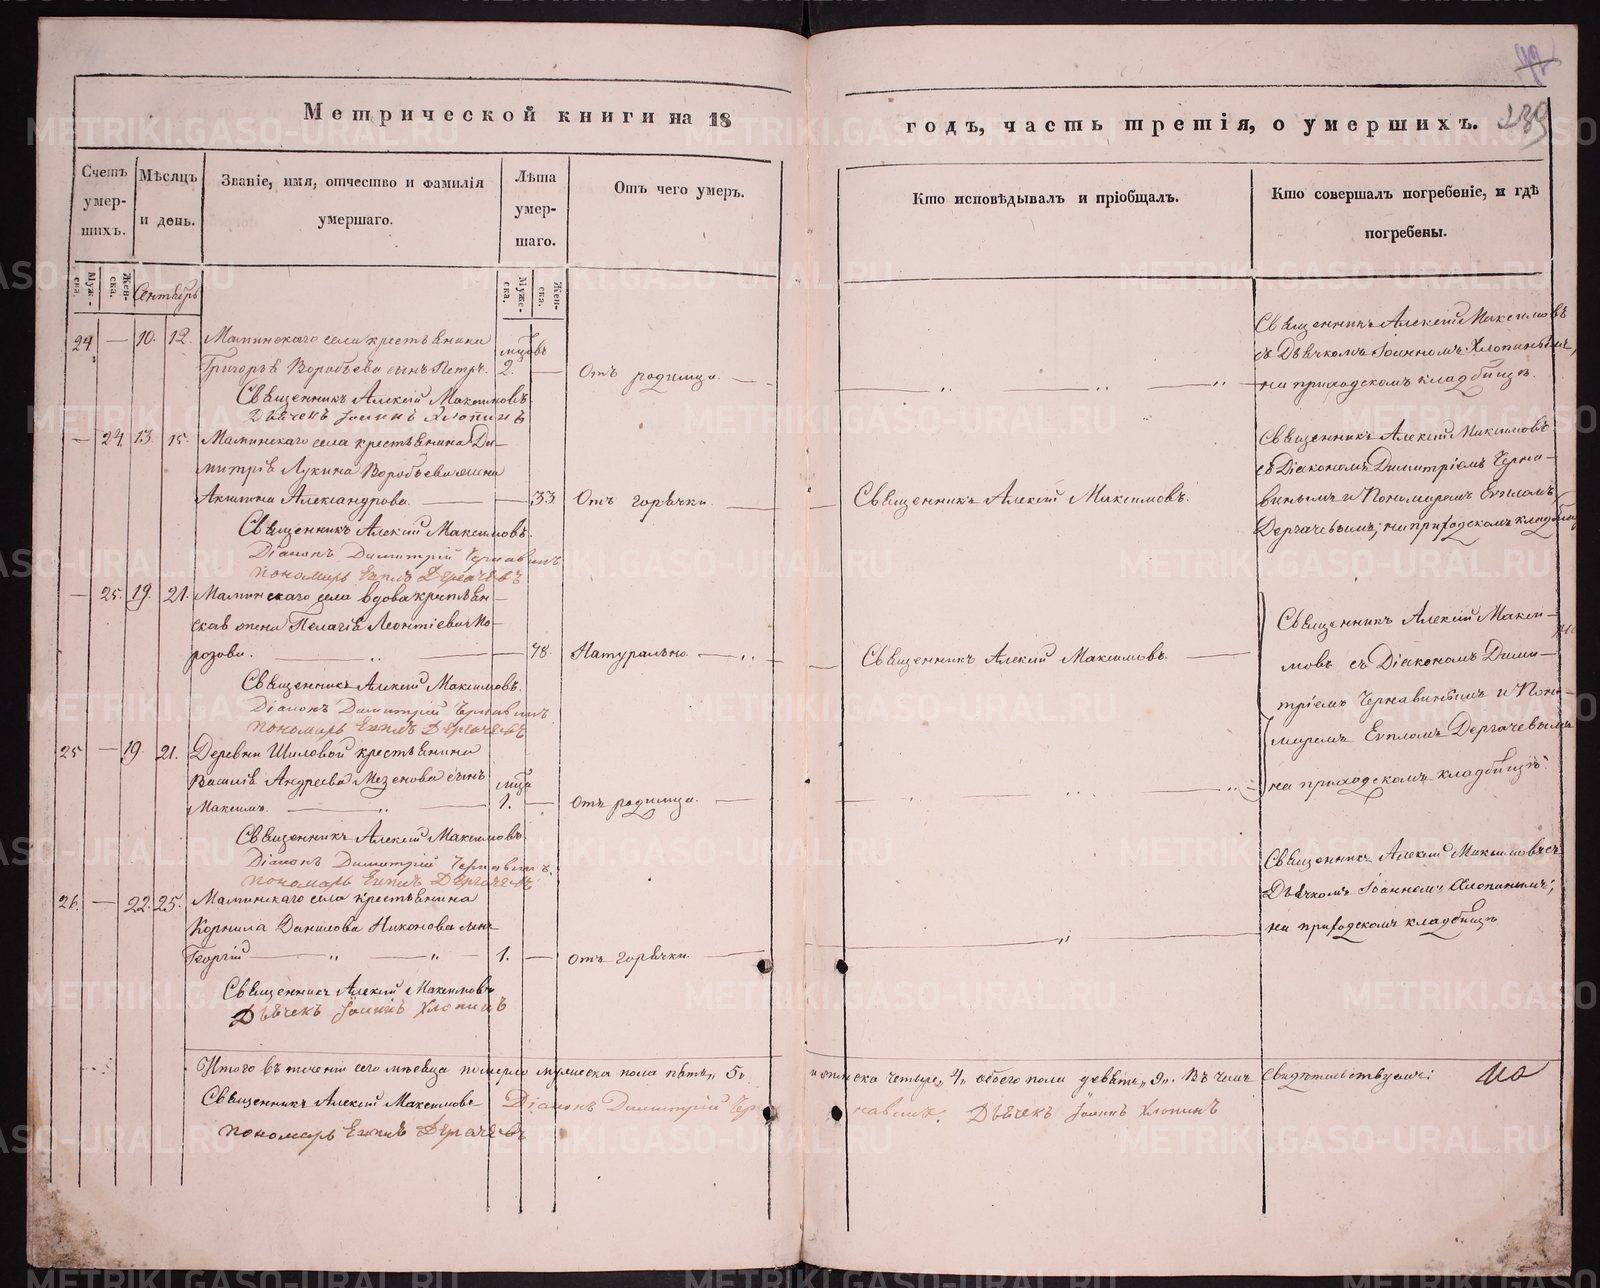 Метрической книги на 18
годъ, часть третія, о умершихъ.
289
Счетъ умер-шихъ.
Мѣсяцъ и день.
Званіе, имя, отчество и фамилія умершаго.
Лѣта умер-шаго.
Отъ чего умеръ.
Кто исповѣдывалъ и пріобщалъ.
Кто совершалъ погребеніе, и гдѣ погребены.
Муж-ска.
Жен-ска.
Сентябрь
Муже-ска.
Жен-ска.
24. — 10. 12. Маминскаго села крестьянина
мцовъ
Григорья Воробьева сынъ Петръ. 2. — Отъ родимца.
Священникъ Алексій Максимовъ.
Дьячекъ Іоаннъ Хлопинъ
Священникъ Алексій Максимовъ
съ Дьячкомъ Іоанномъ Хлопинымъ,
на приходскомъ кладбищѣ.
— 24. 13. 15. Маминскаго села крестьянина Ди-
митрія Лукина Воробьева жена
Акилина Александрова. — 33. Отъ горячки.
Священникъ Алексій Максимовъ.
Священникъ Алексій Максимовъ.
Діаконъ Димитрій Чернавинъ
Пономарь Евплъ Дергачевъ
Священникъ Алексій Максимовъ
съ Діакономъ Димитріемъ Черна-
винымъ и Пономаремъ Евпломъ
Дергачевымъ; на приходскомъ кладбищѣ
— 25. 19. 21. Маминскаго села вдова крестьян-
ская жена Пелагія Леонтіева Мо-
розова. — 78. Натурально.
Священникъ Алексій Максимовъ.
Священникъ Алексій Максимовъ.
Діаконъ Димитрій Чернавинъ
Пономарь Евплъ Дергачевъ
Священникъ Алексій Макси-
мовъ съ Діакономъ Дими-
тріемъ Чернавинымъ и Поно-
маремъ Евпломъ Дергачевымъ
на приходскомъ кладбищѣ.
25 — 19. 21. Деревни Шиловой крестьянина
Василія Андреева Мезенова сынъ
мцa
Максимъ. 1. — Отъ родимца.
Священникъ Алексій Максимовъ.
Діаконъ Димитрій Чернавинъ.
Пономарь Евплъ Дергачевъ
26. — 22. 25. Маминскаго села крестьянина
Корнила Данилова Никонова сынъ
Георгій 1. — Отъ горячки.
Священникъ Алексій Максимовъ
Дьячекъ Іоаннъ Хлопинъ
Священникъ Алексій Максимовъ съ
Дьячкомъ Іоанномъ Хлопинымъ;
на приходскомъ кладбищѣ
Итого въ теченіи сего мѣсяца померло мужеска пола пять „5„
и женска четыре „4„ обоего пола девять „9„. Въ чемъ свидѣтельствуемъ:
Священникъ Алексій Максимовъ Діаконъ Димитрій Чернавинъ. Дьячекъ Іоаннъ Хлопинъ
Пономарь Евплъ Дергачевъ
METRIKI.GASO-URAL.RU